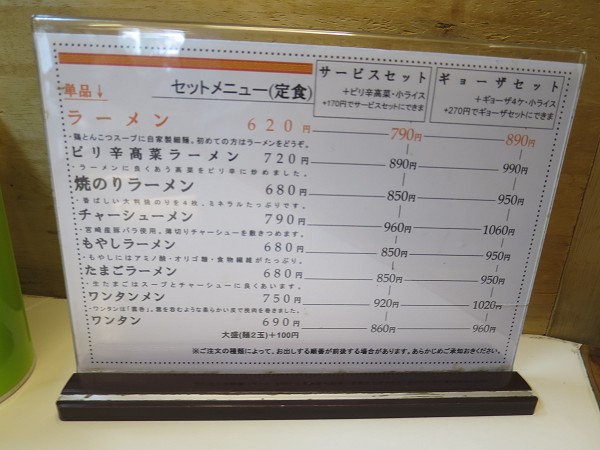 単品↓ セットメニュー(定食) サービスセット ギョーザセット
+ピリ辛高菜・小ライス +ギョーザ4ケ・小ライス
+170円でサービスセットにできま +270円でギョーザセットにできま
ラーメン 620円 790円 890円
・鶏とんこつスープに自家製細麺。初めての方はラーメンをどうぞ。
ピリ辛髙菜ラーメン 720円 890円 990円
・ラーメンに良くあう高菜をピリ辛に炒めました。
焼のりラーメン 680円 850円 950円
・香ばしい大判焼のりを4枚。ミネラルたっぷりです。
チャーシューメン 790円 960円 1060円
・宮崎産豚バラ使用。薄切りチャーシューを敷きつめます。
もやしラーメン 680円 850円 950円
・もやしにはアミノ酸・オリゴ糖・食物繊維がたっぷり。
たまごラーメン 680円 850円 950円
・生たまごはスープとチャーシューに良くあいます。
ワンタンメン 750円 920円 1020円
・ワンタンは「雲呑」。雲を呑むような柔らかい皮で挽肉を巻きました。
ワンタン 690円 860円 960円
大盛(麺2玉)+100円
※ご注文の種類によって、お出しする順番が前後する場合があります。あらかじめご承知おきください。